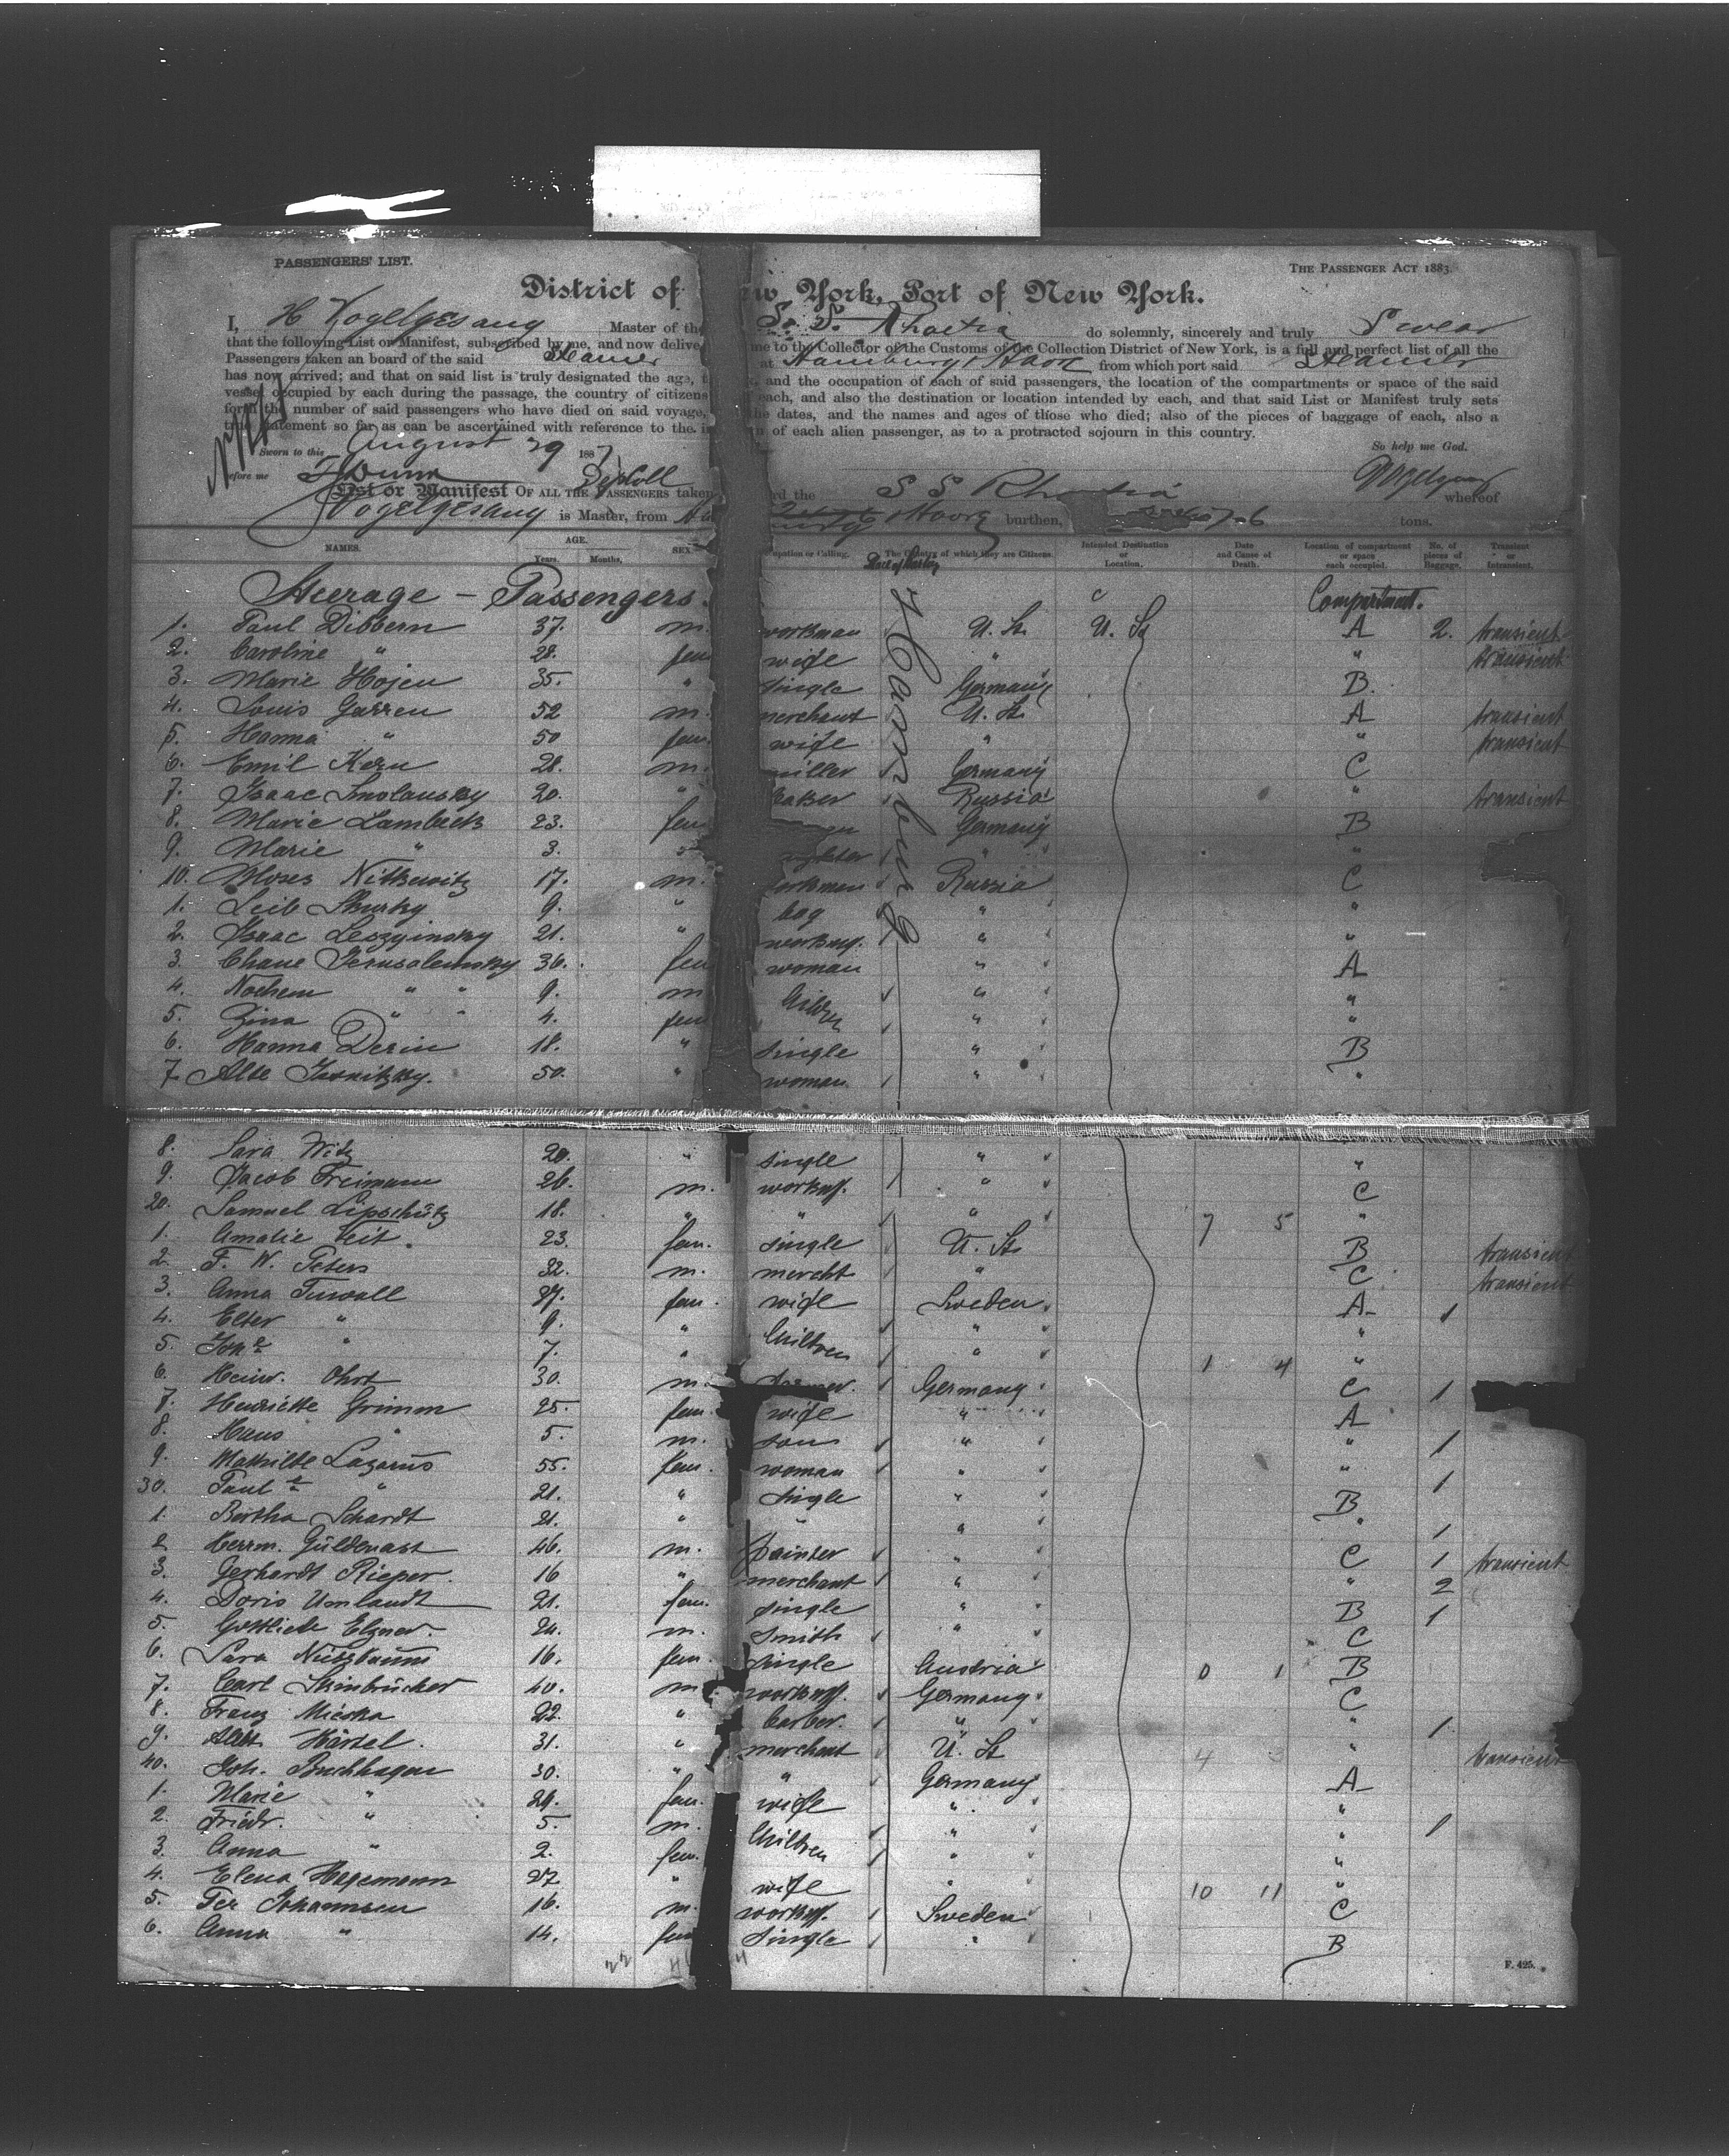 PASSENGERS' LIST.
THE PASSENGER ACT 1883.
District of New York, Port of New York.
I, H Vogelgesang Master of the S. S. Rhaetia do solemnly, sincerely and truly Swear
that the following List or Manifest, subscribed by me, and now delive me to the Collector of the Customs of the Collection District of New York, is a full and perfect list of all the
Passengers taken on board of the said Steamer at Hamburg / Havre from which port said Steamer
has now arrived; and that on said list is truly designated the age, and the occupation of each of said passengers, the location of the compartments or space of the said
vessel occupied by each during the passage, the country of citizens of each, and also the destination or location intended by each, and that said List or Manifest truly sets
forth the number of said passengers who have died on said voyage, the dates, and the names and ages of those who died; also of the pieces of baggage of each, also a
true statement so far as can be ascertained with reference to the in of each alien passenger, as to a protracted sojourn in this country.
Sworn to this August 29 1887 So help me God.
before me Vogelgesang
List or Manifest OF ALL THE PASSENGERS taken rd the S S Rhaetia whereof
Vogelgesang is Master, from burthen, tons.
NAMES. AGE. Years. Months. SEX. upation or Calling. The Country of which they are Citizens. Intended Destination or Location. Date and Cause of Death. Location of compartment or space each occupied. No. of pieces of Baggage. Transient or Intransient.
Steerage - Passengers. Compartment.
Hamburg
1. Paul Dibbern 37. m. workman U. St. U. St. A 2. transient
2. Caroline " 28. fem wife " " transient
3. Marie Hojen 35. " single Germany B.
4. Louis Garren 52 m. merchant U. St. A transient
5. Hanna " 50 fem. wife " " transient
6. Emil Kern 28. m. miller Germany C
7. Isaac Smolansky 20. " Russia " transient
8. Marie Lambeck 23. fem Germany B
9. Marie " 3. ughter " "
10. Moses Nitkewitz 17. m. workman Russia C
1. Leib Skursky 9. " boy " "
2. Isaac Leszyinsky 21. " workm. " "
3. Chane Jerusalemsky 36. fem woman " A
4. Nochem " " 9. m " "
5. Zina " " 4. fem " "
6. Hanna Derin 18. " single " B
7. Alte Jasnitzky. 50. " woman " "
8. Sara Witz 20. " single " "
9. Jacob Freimann 26. m. workm. " C
20. Samuel Lipschütz 18. " " " 7 5 "
1. Amalie Veit. 23. fem. single U. St. B transient
2. F. W. Peters 32. m. mercht " C transient
3. Anna Tuwall 27. fem. wife Sweden A 1
4. Elter " 9. " Children " "
5. Joh. " 7. " " 1 4 "
6. Heinr. Ohrt 30. m. Germany C 1
7. Henriette Grimm 25. fem. wife " A
8. Hans " 5. m. son " " 1
9. Mathilde Lazarus 55. fem. woman " " 1
30. Paul " 21. " single " B
1. Bertha Schardt 21. " " " " 1
2 Herrm. Güldenast 46. m. painter " C 1 transient
3. Gerhardt Rieper. 16 " merchant " " 2
4. Doris Umlandt 21. fem. single " B 1
5. Gottlieb Elzner. 24. m. smith " C
6. Sara Nussbaum 16. fem. single Austria 0 1 B
7. Carl Steinbrücker 40. m workm. Germany C
8. Franz Mieska 22. " barber. " " 1
9. Albt Härtel. 31. " merchant U. St 4 3 " transient
40. Joh. Buchhagen 30. " " Germany A
1. Marie " 29. fem. wife " "
2. Friedr. " 5. m. Children " " 1
3. Anna " 2. fem. " "
4. Elena Hagemann 27. " wife " 10 11 "
5. Per Johannsen 16. m. workm. Sweden C
6. Anna " 14. fem single " B
F. 425.